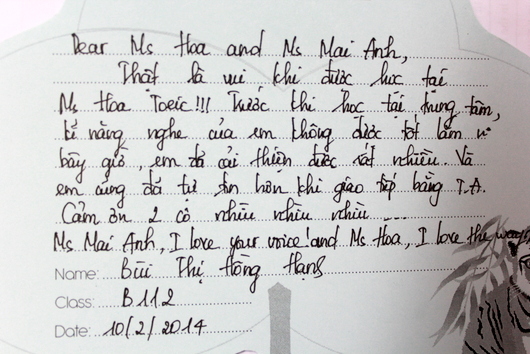 Dear Ms Hoa and Ms Mai Anh,
Thật là vui khi được học tại
Ms Hoa Toeic!!! Trước khi học tại trung tâm,
kĩ năng nghe của em không được tốt lắm vì
bây giờ, em đã cải thiện được rất nhiều. Và
em cũng đã tự tin hơn khi giao tiếp bằng T.A.
Cảm ơn 2 cô nhiều nhiều nhiều ....
Ms Mai Anh, I love your voice! and Ms Hoa, I love the way
Name: Bùi Thị Hồng Hạnh
Class: B11.2
Date: 10/2/2014